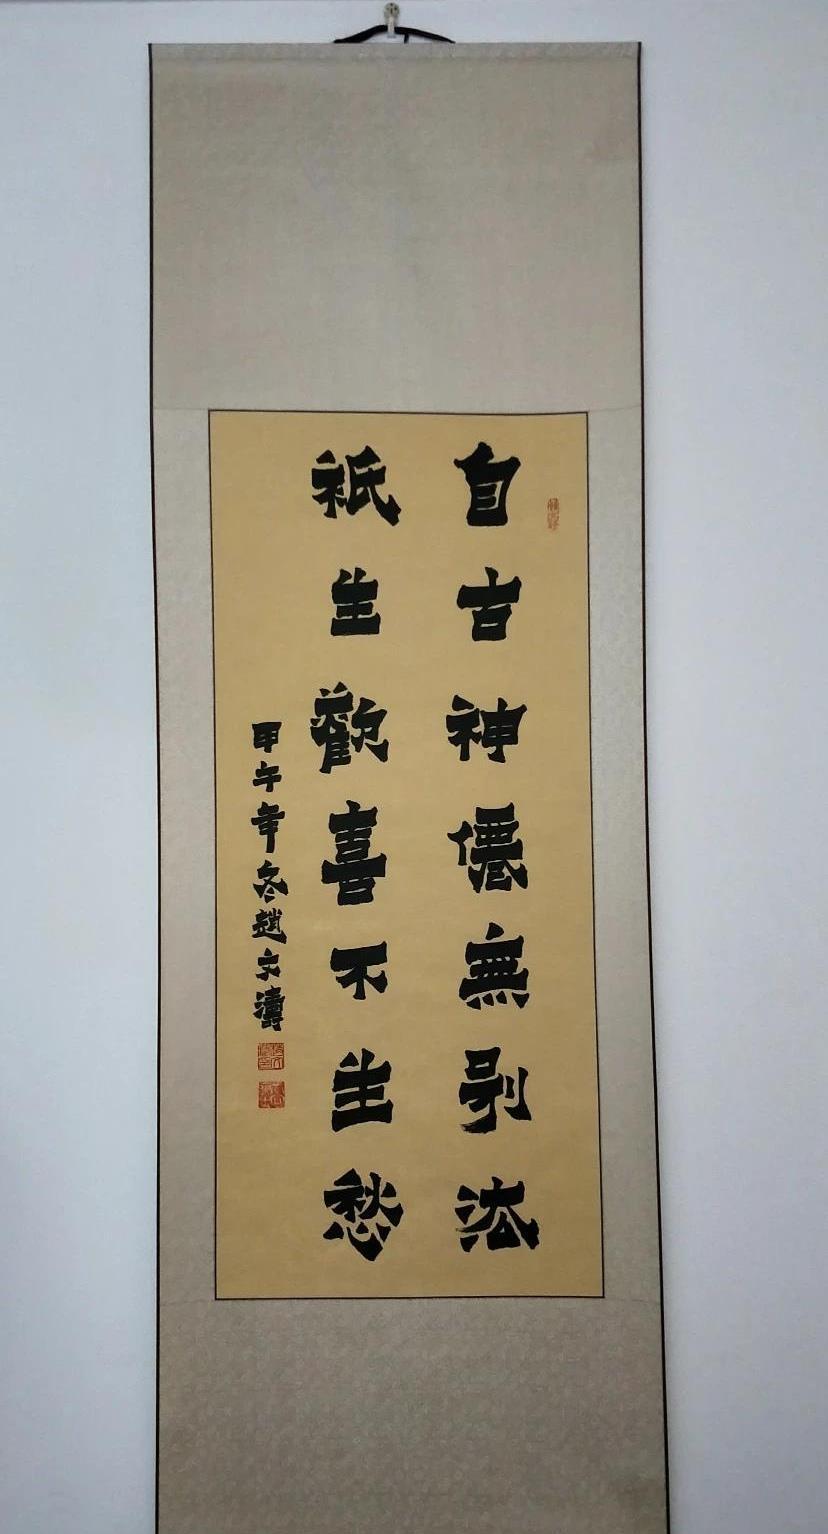 自古神僊無別法
祇生歡喜不生愁
甲午年冬趙文濤